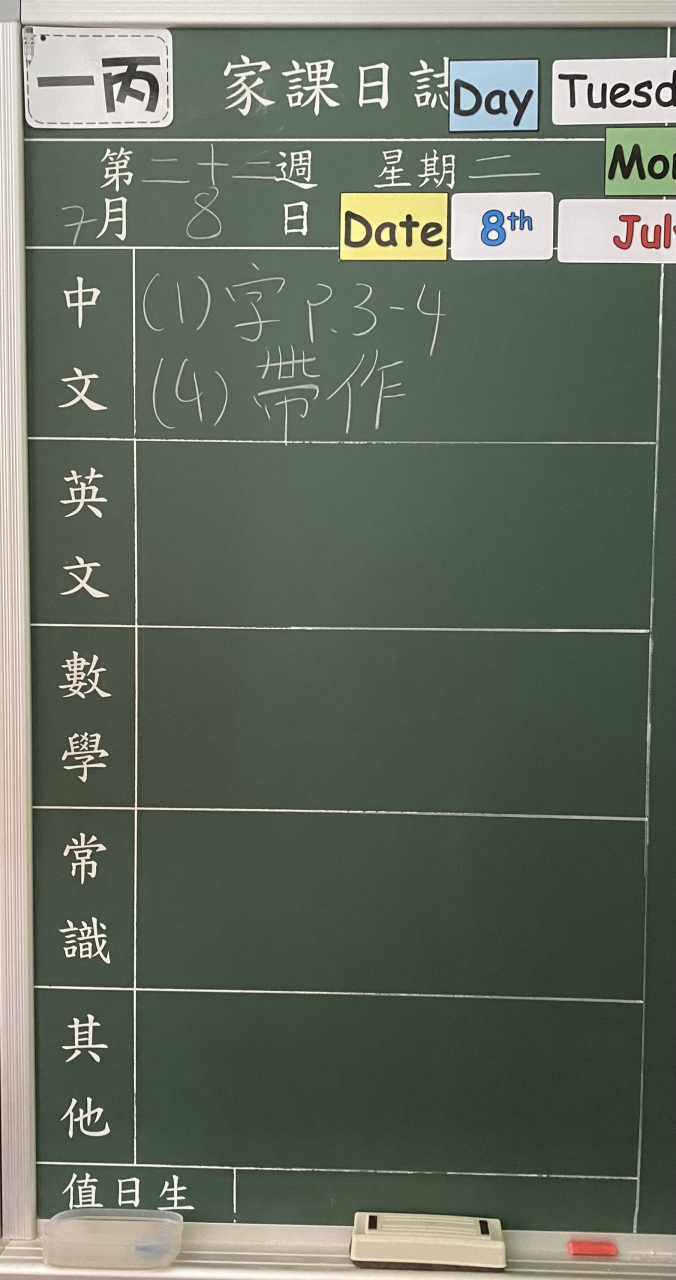 一丙 家課日誌 Day Tuesd
第二十二週 星期二 Mo
7月 8 日 Date 8th Jul
中文 (1) 字 P.3-4
(4) 帶作
英文
數學
常識
其他
值日生